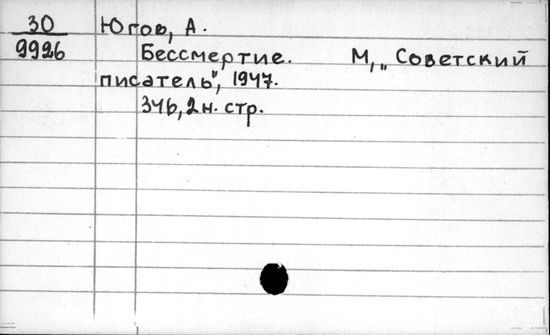 30
9926
Югов, А.
Бессмертие. М, „Советский
писатель", 1947.
346, 2 н. стр.